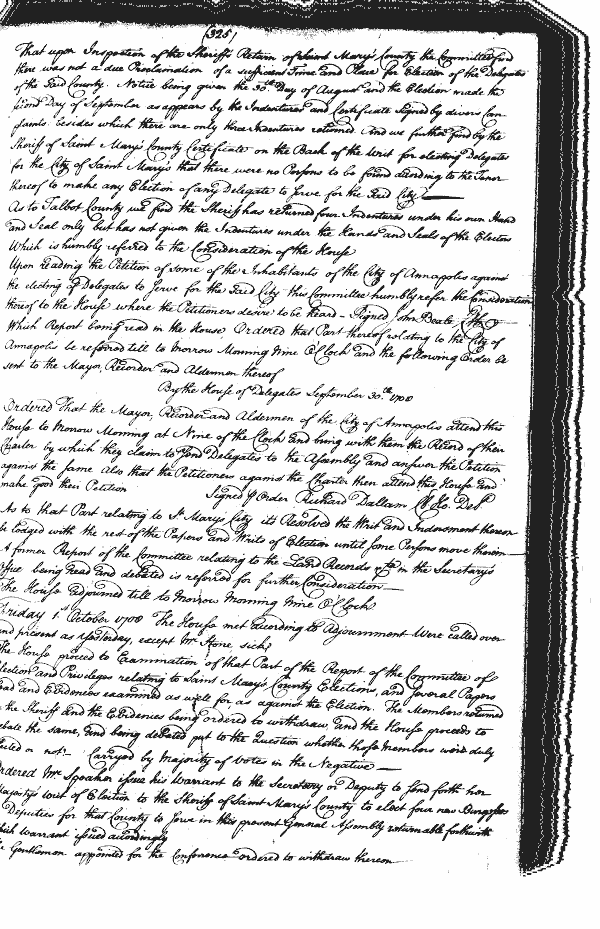 (325)
That upon Inspection of the Sheriffs Return of Saint Mary's County the Committee find
there was not a due Proclamation of a sufficient Time and Place for Election of the Delegates
of the said County. Notice being given the 30th Day of August and the Election made the
second Day of September as appears by the Indentures and Certificate Signed by divers Con-
stants. besides which there are only three Indentures returned And we further find by the
Sheriff of Saint Mary's County Certificate on the Back of the Writ for electing Delegates
for the City of Saint Mary's that there were no Persons to be found according to the Tenor
thereof to make any Election of any Delegate to serve for the said City.
As to Talbot County we find the Sheriff has returned four Indentures under his own Hand
and Seal only but has not given the Indentures under the Hands and Seals of the Electors
Which is humbly referred to the Consideration of the House
Upon reading the Petition of some of the Inhabitants of the City of Annapolis against
the electing of Delegates to serve for the said City this Committee humbly refer the Consideration
thereof to the House where the Petitioners desire to be heard - Signed John Beale
Which Report being read in the House Ordered that Part thereof relating to the City of
Annapolis be referred till to Morrow Morning Nine O'Clock and the following Order be
sent to the Mayor, Recorder and Aldermen thereof
By the House of Delegates September 30.th 1708
Ordered That the Mayor, Recorder and Aldermen of the City of Annapolis attend this
House to Morrow Morning at Nine of the Clock and bring with them the Record of their
Charter by which they claim to send Delegates to the Assembly and answer the Petition
against the same Also that the Petitioners against the Charter then attend this House and
make good their Petition
Signed p Order Richard Dallam Cl. Ho. Del.
As to that Part relating to St. Mary's City it's Resolved the Writ and Indorsment thereon
be Lodged with the rest of the Papers and Writs of Election until some Persons move therein
A former Report of the Committee relating to the Land Records &c in the Secretary's
Office being read and debated is referred for further Consideration
The House adjourned till to Morrow Morning Nine O'Clock
Friday 1.st October 1708 The House met according to Adjournment Were called over
and present as yesterday, except Mr. Stone sick
The House proceed to Examination of that Part of the Report of the Committee of
Elections and Privileges relating to Saint Mary's County Elections, and several Papers
read and Evidences examined as well for as against the Election. The Members returned
the Sheriff and the Evidences being ordered to withdraw, and the House proceeds to
debate the same, and being debated put to the Question whether those Members were duly
elected or not? Carryed by Majority of Votes in the Negative
Ordered Mr. Speaker issue his Warrant to the Secretary or Deputy to send forth her
Majesty's Writ of Election to the Sheriff of Saint Mary's County to elect four new Burgesses
Deputies for that County to serve in this present General Assembly returnable forthwith
which Warrant issued accordingly
Gentlemen appointed for the Conference ordered to withdraw thereon